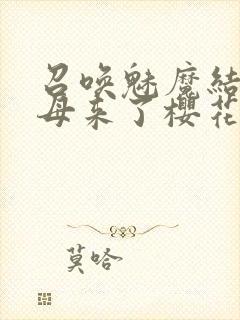 召唤魅魔结
母来了樱花
莫哈